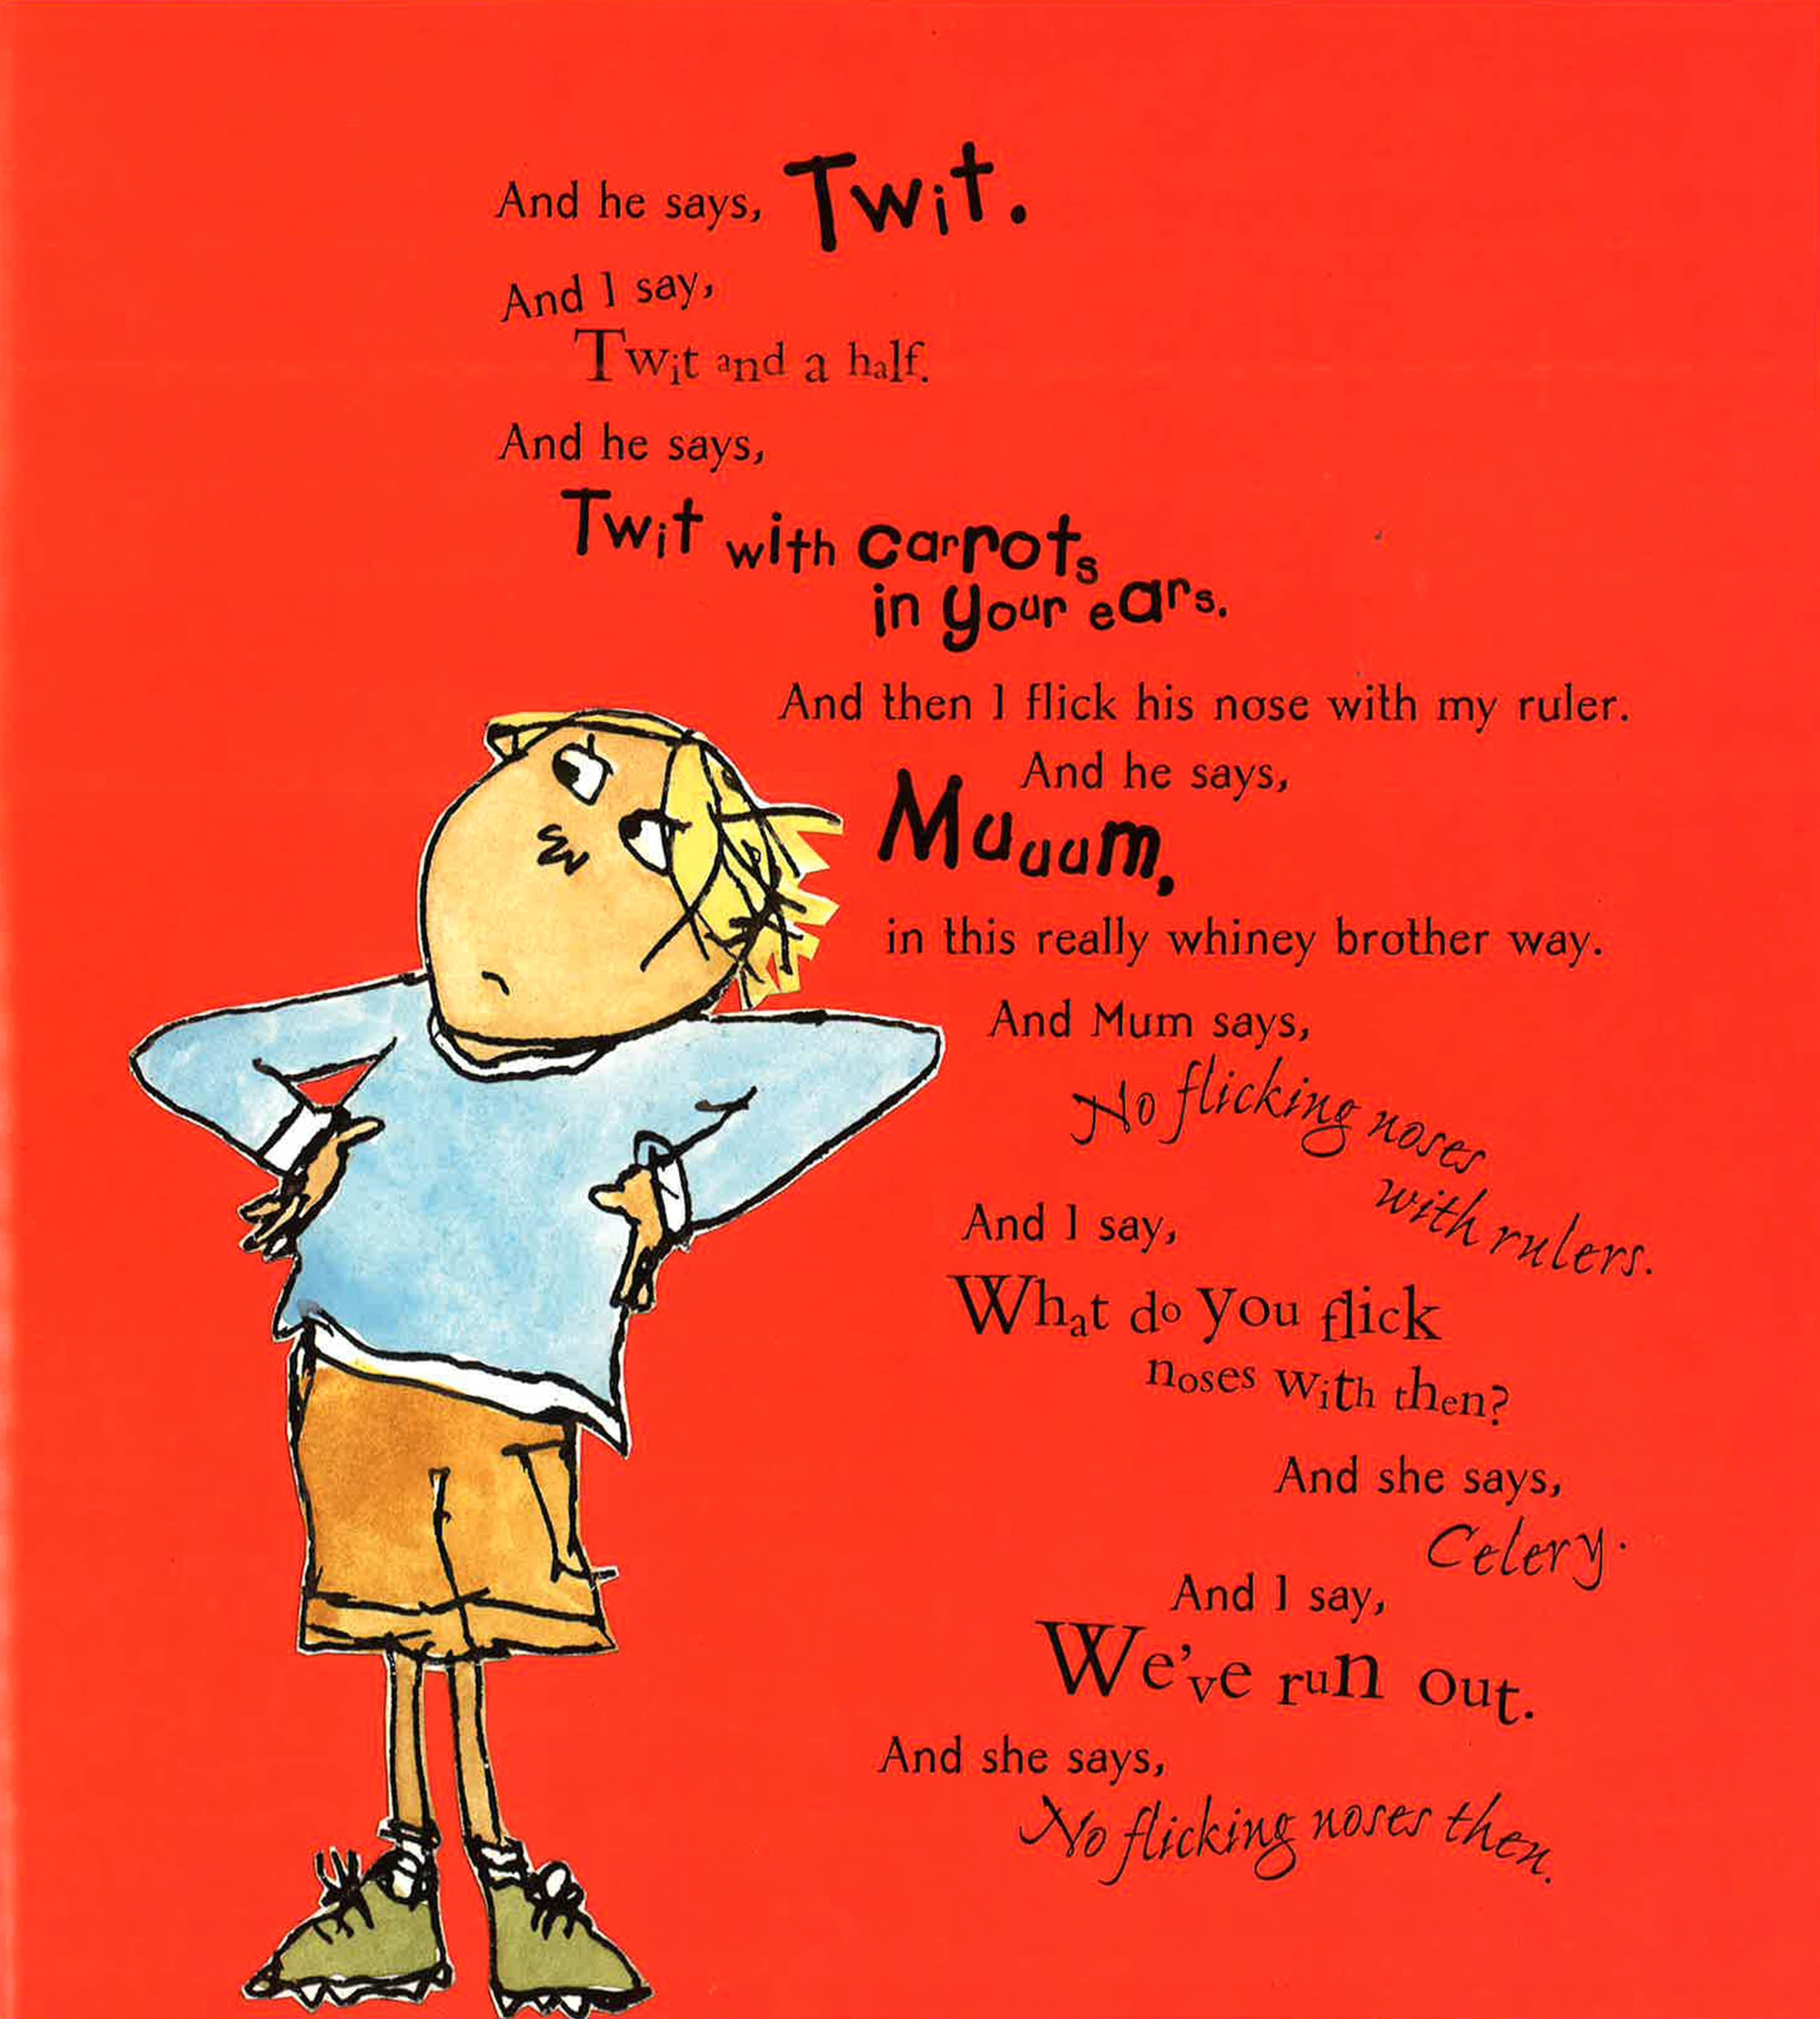 And he says, Twit.
And I say,
Twit and a half.
And he says,
Twit with carrots
in your ears.
And then I flick his nose with my ruler.
And he says,
Muuum,
in this really whiney brother way.
And Mum says,
No flicking noses
with rulers.
And I say,
What do you flick
noses with then?
And she says,
Celery.
And I say,
We've run out.
And she says,
No flicking noses then.